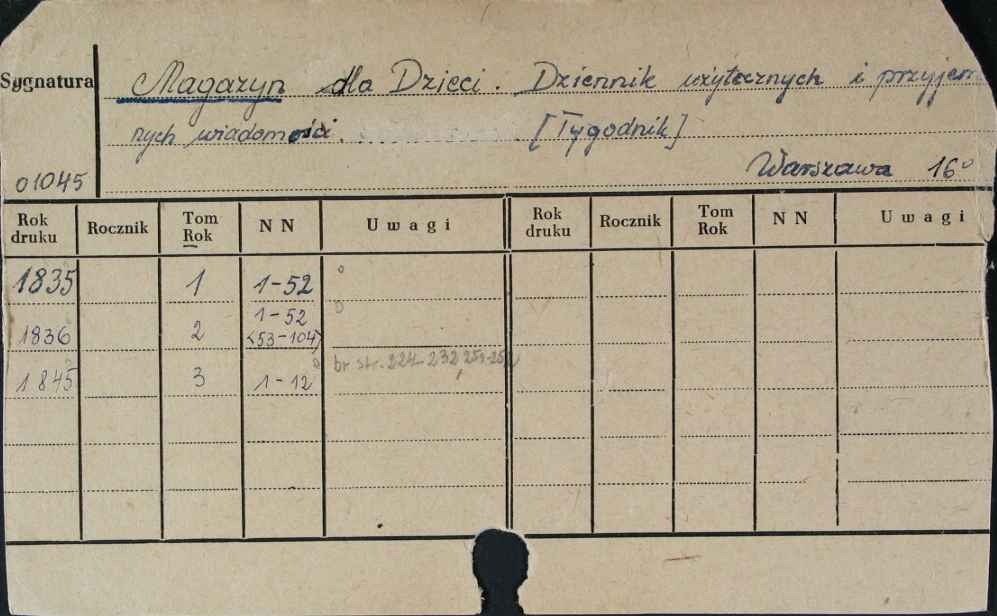 Sygnatura Magazyn dla Dzieci. Dziennik użytecznych i przyjem
nych wiadomości. [Tygodnik]
01045 Warszawa 16°
Rok druku Rocznik Tom Rok NN Uwagi Rok druku Rocznik Tom Rok NN Uwagi
1835 1 1-52 °
1836 2 1-52 °
<53-104>
br. str. 224-232,
1845 3 1-12 °